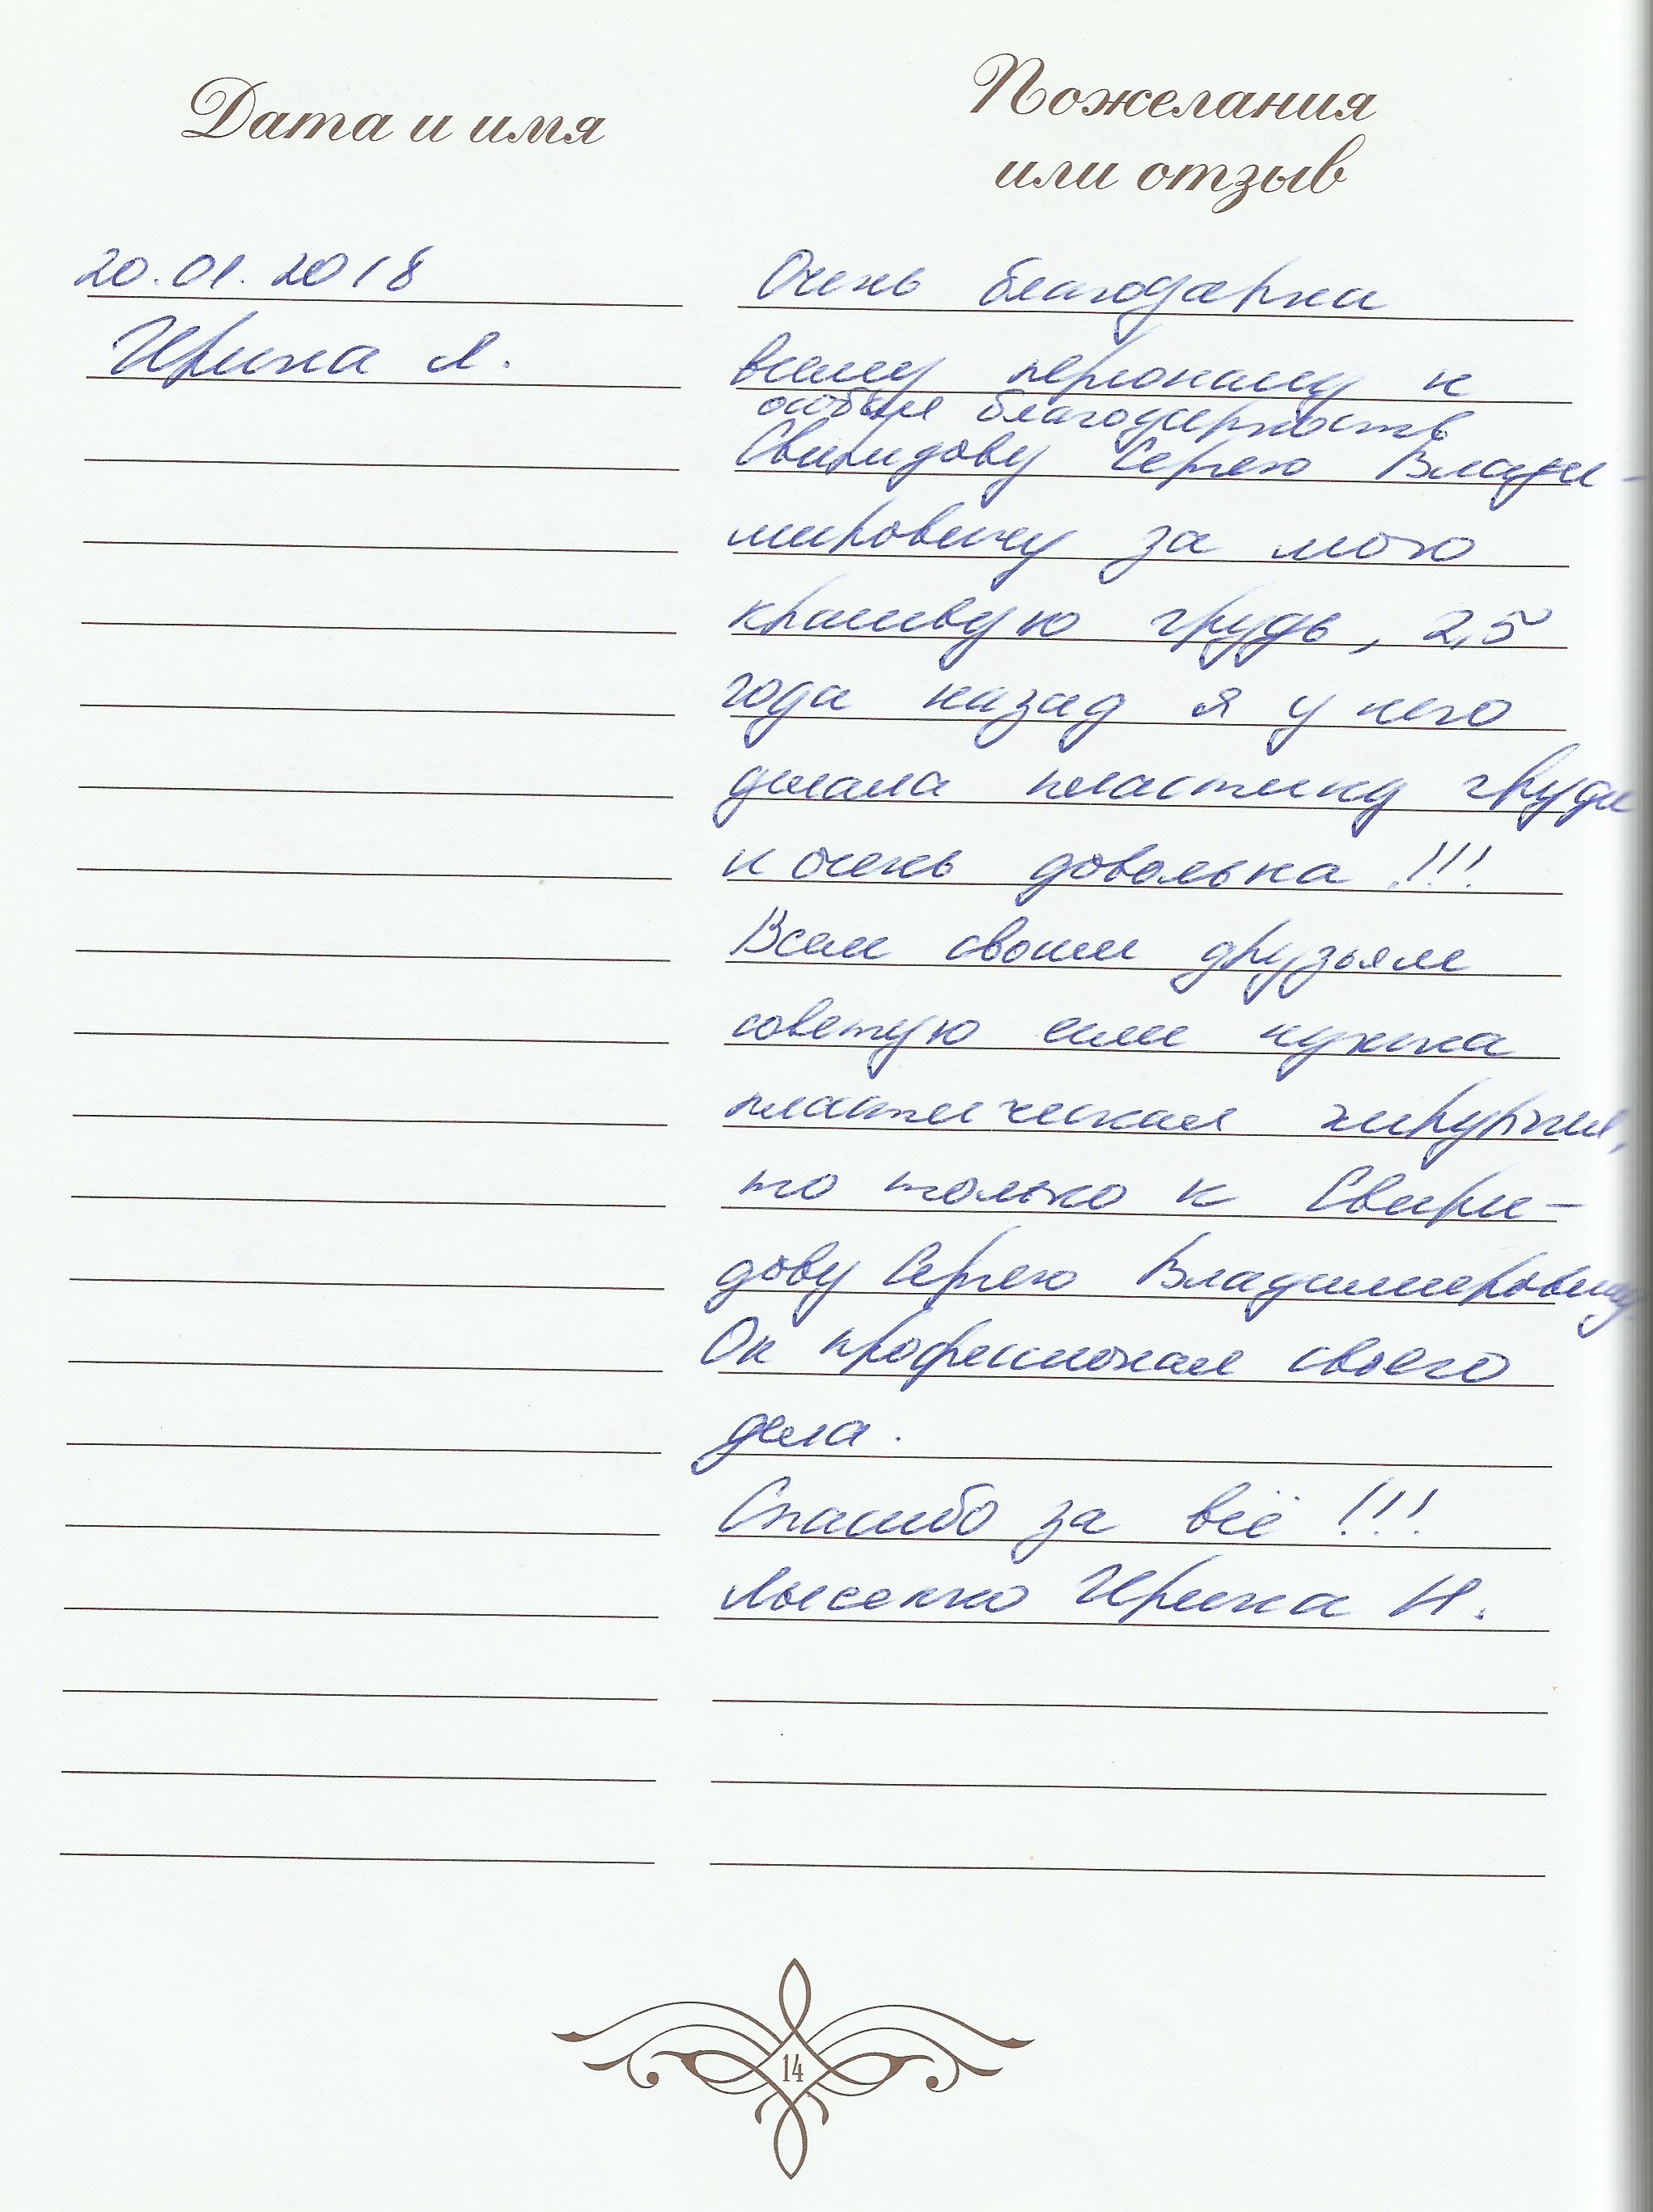 Дата и имя
Пожелания
или отзыв
20.01.2018
Ирина Л.
Очень благодарна
всему персоналу и
особая благодарность
Свиридову Сергею Влади-
мировичу за мою
красивую грудь, 2,5
года назад я у него
делала пластику груди
и очень довольна !!!
Всем своим друзьям
советую если нужна
пластическая хирургия,
то только к Свири-
дову Сергею Владимировичу
Он профессионал своего
дела.
Спасибо за всё !!!
Лысенко Ирина Н.
14